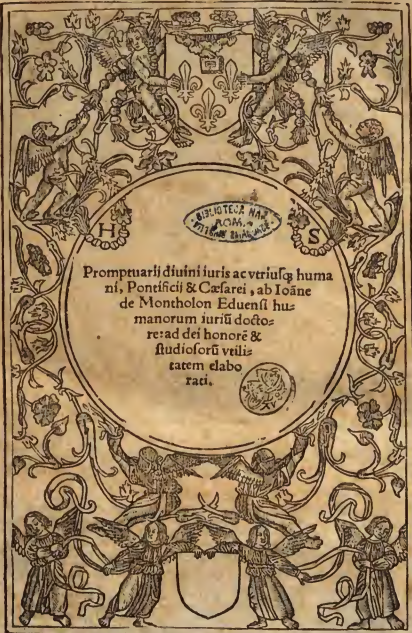 H S
BIBLIOTECA NAZ
ROMA
VITTORIO EMANUELE
Promptuarij diuini iuris ac vtriusq; huma
ni, Pontificii & Cæsarei, ab Ioāne
de Montholon Eduensi hu-
manorum iuriū docto-
re: ad dei honorē &
studiosorū vtili-
tatem elabo
rati.